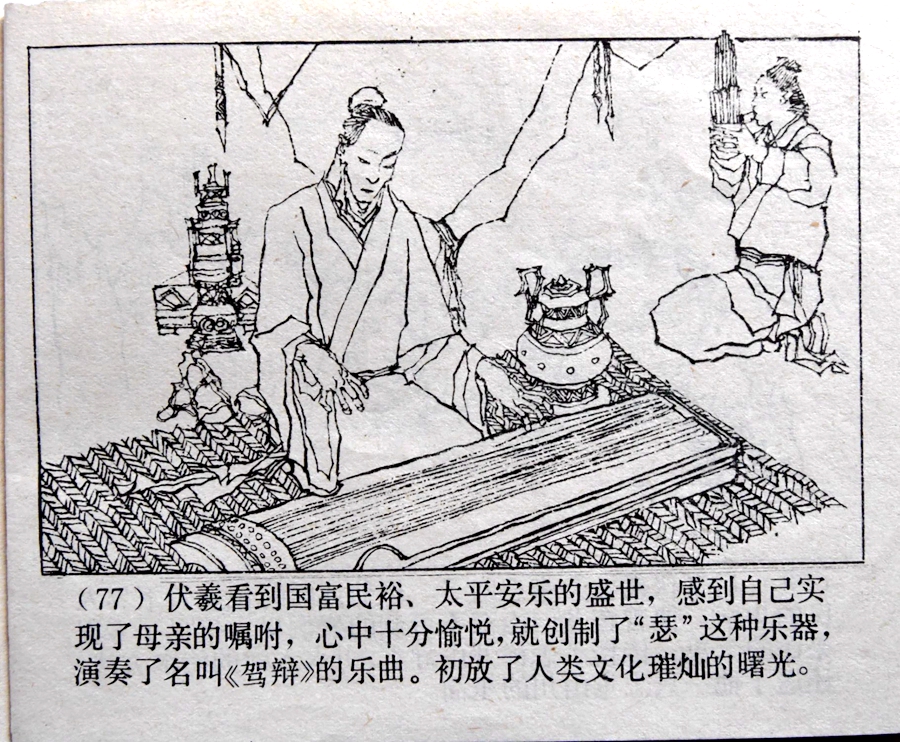 （77）伏羲看到国富民裕、太平安乐的盛世，感到自己实
现了母亲的嘱咐，心中十分愉悦，就创制了“瑟”这种乐器，
演奏了名叫《驾辩》的乐曲。初放了人类文化璀灿的曙光。